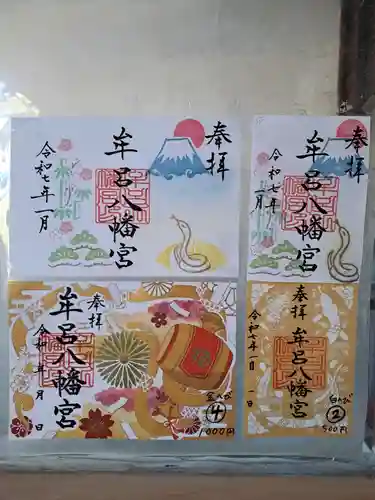 奉拝
牟呂八幡宮
令和七年一月
奉拝
牟呂八幡宮
令和七年
一月
奉拝
牟呂八幡宮
令和 年 月 日
金へび
④
1,000円
奉拝
牟呂八幡宮
令和七年一月
白へび
②
500円